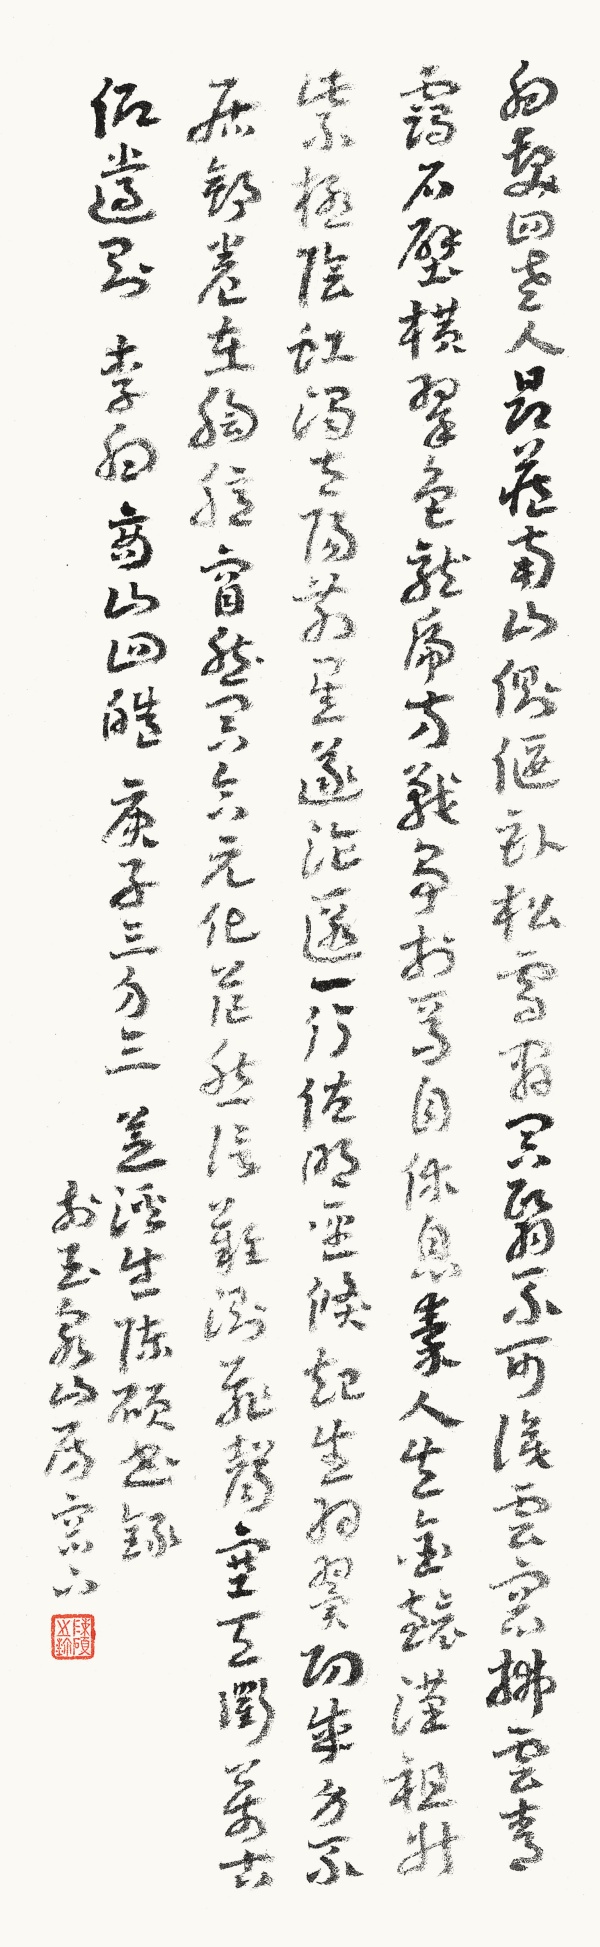 白髮四老人昂藏南山側偃臥松雪間冥翳不可識雲窗拂雲青
靄石壁橫翠色龍虎方戰爭於焉自休息秦人失金鏡漢祖升
紫極陰虹濁太陽前星遂淪匿一行佐明聖倏起生羽翼功成身不
居舒卷在胸臆窅然冥合元化茫然信難測飛聲塞天衢萬古
仰遺則 李白商山四皓 庚子三月三 溪生陳碩書錄
於玉泉山房窗下